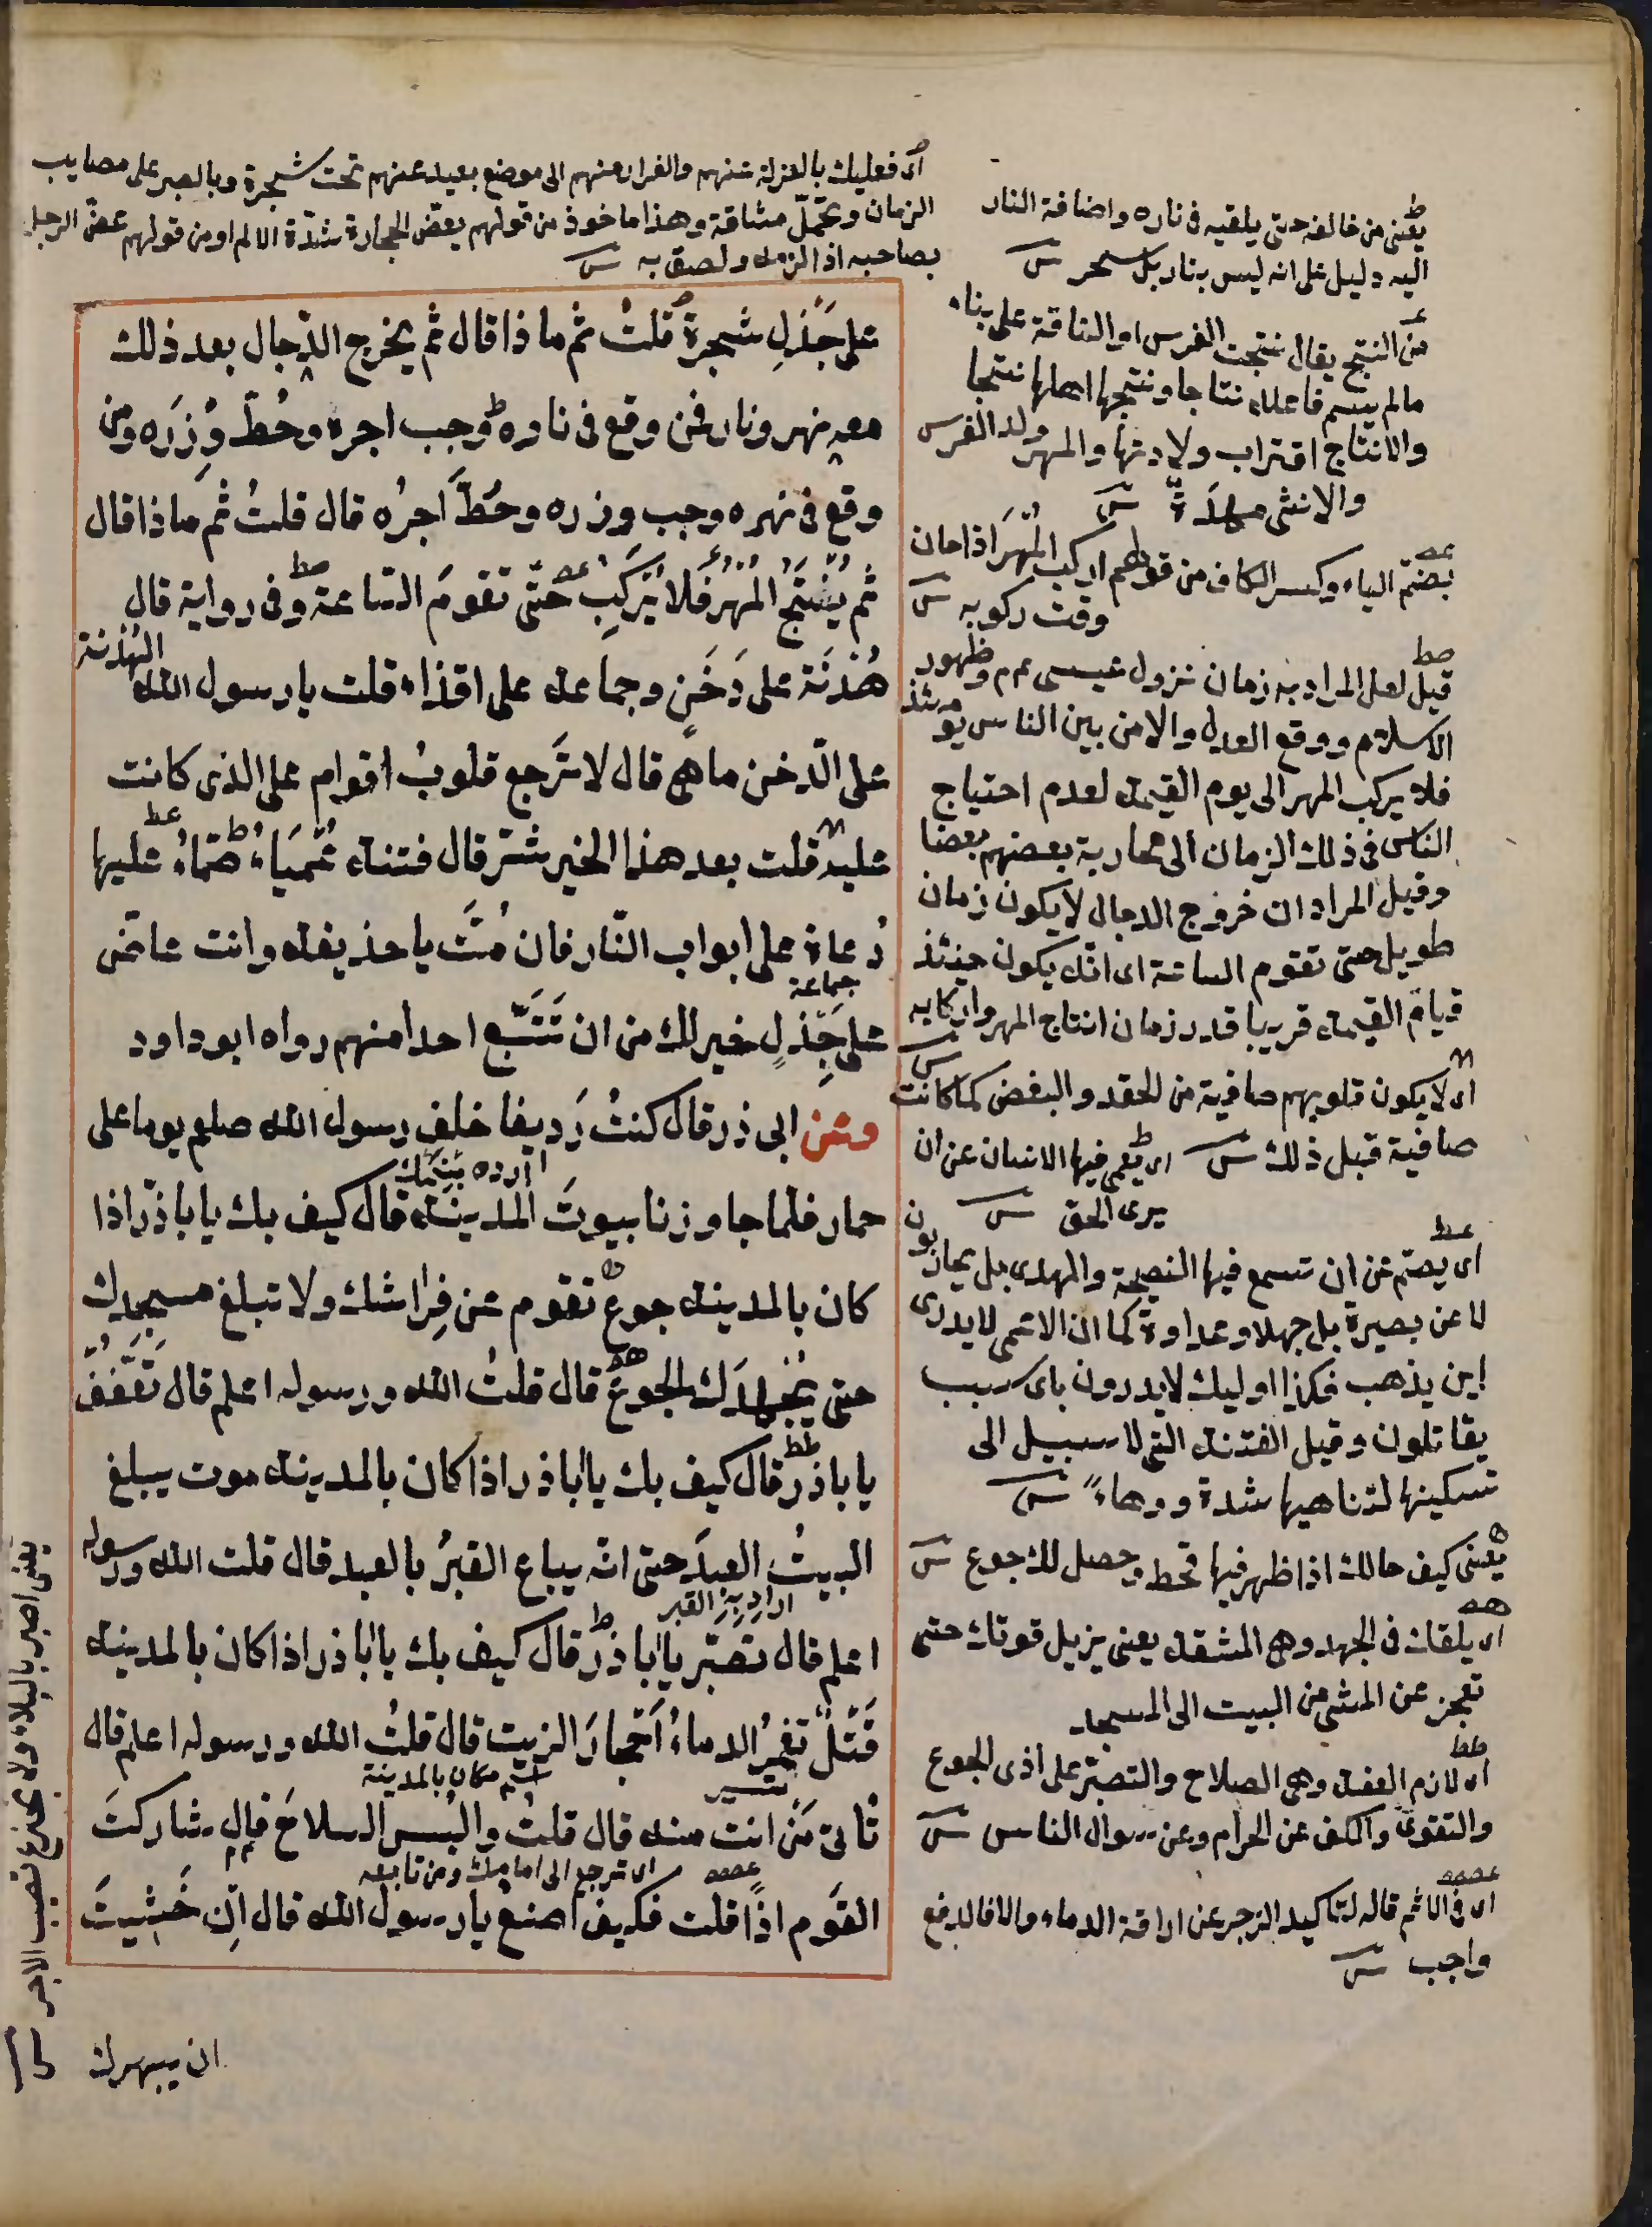 اى فعليك بالعزلة عنهم والفرار منهم الى موضع بعيد عنهم تحت شجرة وبالصبر على مصايب
الزمان وتحمّل مشاقه وهذا ماخوذ من قولهم يعضّ الحجارة شدّة الالم او من قولهم عضّ الرجل
بصاحبه اذا لزمه ولصق به
على جَذْلِ شجرة قلتُ ثم ماذا قال ثم يخرج الدّجال بعد ذلك
معه نهر ونار فمن وقع فى ناره وجب اجره وحُطّ وِزرَه ومن
وقع فى نهره وجب وزره وحُطّ اجرُه قال قلتُ ثم ماذا قال
ثم يُنْتَجُ المُهْرُ فلا يُركَبِ حتّى تقومَ السّاعة وفى رواية قال
هُدْنَة على دَخَنٍ وجماعة على اقذاء قلت يا رسول الله الهُدْنة
على الدّخن ما هى قال لا تَرجع قلوبُ اقوام على الذى كانت
عليه قلت بعد هذا الخير شر قال فتنة عَمْيَاءُ صَمّاءُ عليها
دُعاة على ابواب النّار فان مُتَّ يا حذيفة وانت عاضّ
على جِذْلٍ خير لك من ان تَتَّبع احدا منهم رواه ابو داود
جماعة
وعن ابى ذر قال كنتُ رَديفا خلف رسول الله صلعم يوما على
حمار فلما جاوزنا بيوتَ المدينة قال كيف بك يا با ذرّ اذا
كان بالمدينة جوع تقوم عن فِراشك ولا تبلغ مسجدك
حتى يُجْهِدَك الجوعُ قال قلتُ الله ورسوله اعلم قال تَعَفَّفْ
يا با ذر قال كيف بك يا ابا ذر اذا كان بالمدينة موت يبلغ
البيتُ العبدَ حتى انه يباع القبرُ بالعبد قال قلت الله ورسوله
اراد به القبر
اعلم قال تصبّر يا ابا ذر قال كيف بك يا ابا ذر اذا كان بالمدينة
قَتْلٌ تغمرُ الدماءُ اَحْجارَ الزيت قال قلتُ الله ورسوله اعلم قال
اسم مكان بالمدينة
تأتى مَن انت منه قال قلت والبس السلاحَ قال شاركتَ
اى ترجع الى امامك ومن تابعه
القوم اذًا قلت فكيف اصنع يا رسول الله قال اِن خَشِيتَ
ان يبهرك
يعنى من خالفه حتى يلقيه فى ناره واضافة النار
اليه دليل على انه ليس بنار بل سحر
من النتج يقال نتجت الفرس او الناقة على بناء
مالم يسم فاعله نتاجا ونتجها اهلها نتجا
والانتاج اقتراب ولادتها والمهر ولد الفرس
والانثى مهرة
بضمّ الياء وكسر الكاف من قولهم اركب المُهرَ اذا حان
وقت ركوبه
قيل لعل المراد به زمان نزول عيسى عم وظهور
الاسلام ووقع العدل والامن بين الناس يومئذ
فلا يركب المهر الى يوم القيمة لعدم احتياج
الناس فى ذلك الزمان الى محاربة بعضهم بعضا
وقيل المراد ان خروج الدجال لا يكون زمان
طويل حتى تقوم الساعة اى انه يكون حينئذ
قيام القيمة قريبا قدر زمان انتاج المهر واركابه
اى لا يكون قلوبهم صافية من الحقد والبغض كما كانت
صافية قبل ذلك اى يعمى فيها الانسان عن ان
يرى الحق
اى يصمّ عن ان تسمع فيها النصيحة والهدى بل يحاربون
لا عن بصيرة بل جهلا وعداوة كما ان الاعمى لا يدرى
اين يذهب فكذا اوليك لا يدرون باى سبب
يقاتلون وقيل الفتنة التى لا سبيل الى
تسكينها لتناهيها شدة ودهاءً
يعنى كيف حالك اذا ظهر فيها قحط وحصل لك جوع
اى يلقاك فى الجهد وهى المشقة يعنى يزيل قوتك حتى
تعجز عن المشى من البيت الى المسجد
اى لازم العفة وهى الصلاح والتصبّر على اذى الجوع
والتقوى والكف عن الحرام وعن سوال الناس
اى فى الاثم قاله لتاكيد الزجر عن اراقة الدماء والا فالدفع
واجب
يعنى اصبر بالبلاء ولا تجزع تصب الاجر